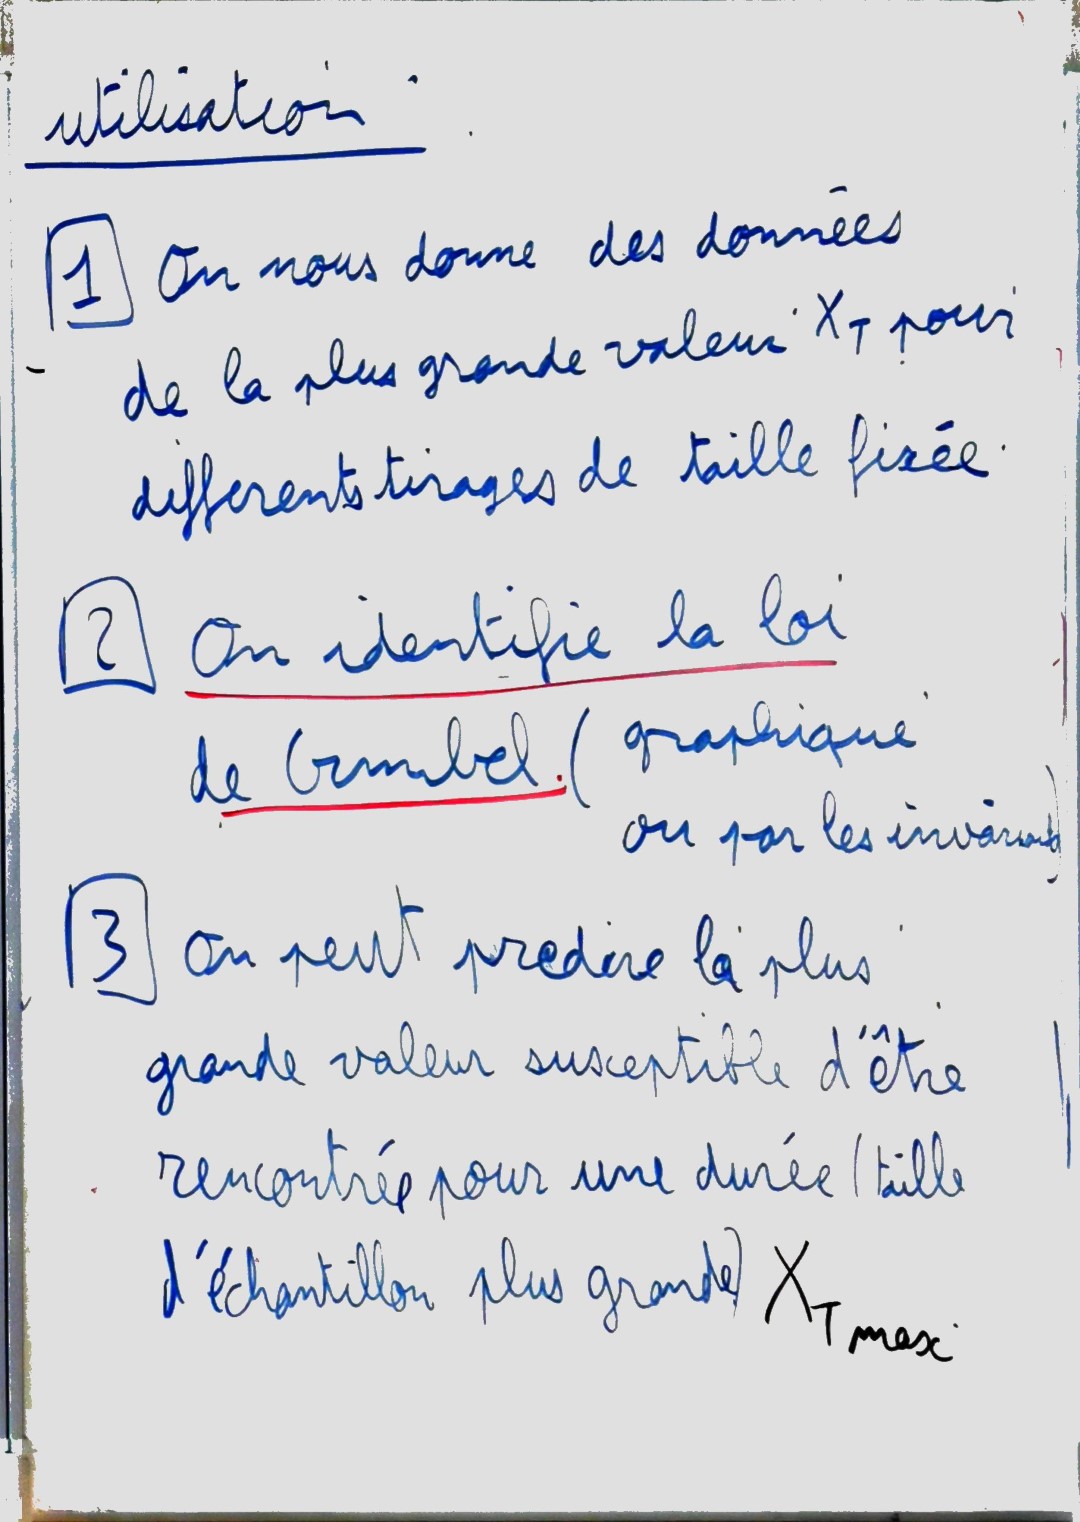 utilisation
1 On nous donne des données
de la plus grande valeur X_T pour
differents tirages de taille fixée.
2 On identifie la loi
de Gumbel. ( graphique
ou par les invariants)
3 On peut predire la plus
grande valeur susceptible d'être
rencontrée pour une durée (taille
d'échantillon plus grande) X_T max